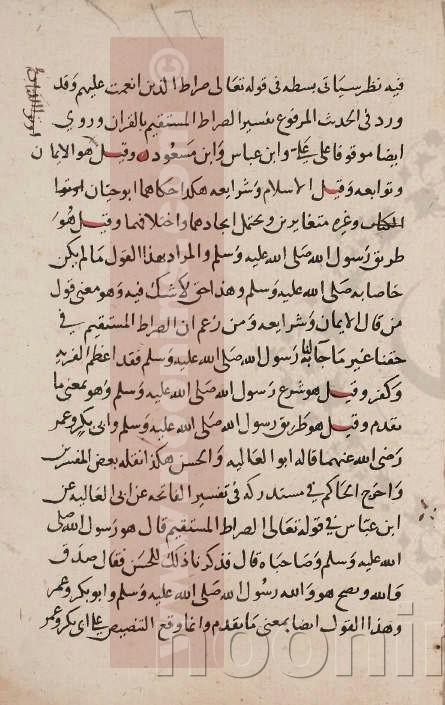 فيه نظر سيأتي بسطه في قوله تعالى صراط الذين انعمت عليهم وقد
ورد في الحديث المرفوع تفسير الصراط المستقيم بالقران وروي
ايضا موقوفا على علي وابن عباس وابن مسعود وقيل هو الايمان
وتوابعه وقيل الاسلام وشرايعه هكذا حكاهما ابو حيان
وغيره متغايرين ويحتمل اتحادهما واختلافهما وقيل هو
طريق رسول الله صلى الله عليه وسلم والمراد بهذا القول ما لم يكن
خاصا به صلى الله عليه وسلم وهذا حق لا شك فيه وهو معنى قول
من قال الايمان وشرايعه ومن زعم ان الصراط المستقيم في
حقنا غير ما جانا به رسول الله صلى الله عليه وسلم فقد اعظم الفرية
وكفر وقيل هو شرع رسول الله صلى الله عليه وسلم وهو بمعنى ما
تقدم وقيل هو طريق رسول الله صلى الله عليه وسلم وابي بكر وعمر
رضي الله عنهما قاله ابو العالية والحسن هكذا نقله بعض المفسرين
واخرج الحاكم في مستدركه في تفسير الفاتحة عن ابي العالية عن
ابن عباس في قوله تعالى الصراط المستقيم قال هو رسول الله صلى
الله عليه وسلم وصاحباه قال فذكرنا ذلك للحسن فقال صدق
والله ونصح هو والله رسول الله صلى الله عليه وسلم وابو بكر وعمر
وهذا القول ايضا بمعنى ما تقدم وانما وقع التنصيص على ابي بكر وعمر
noonin